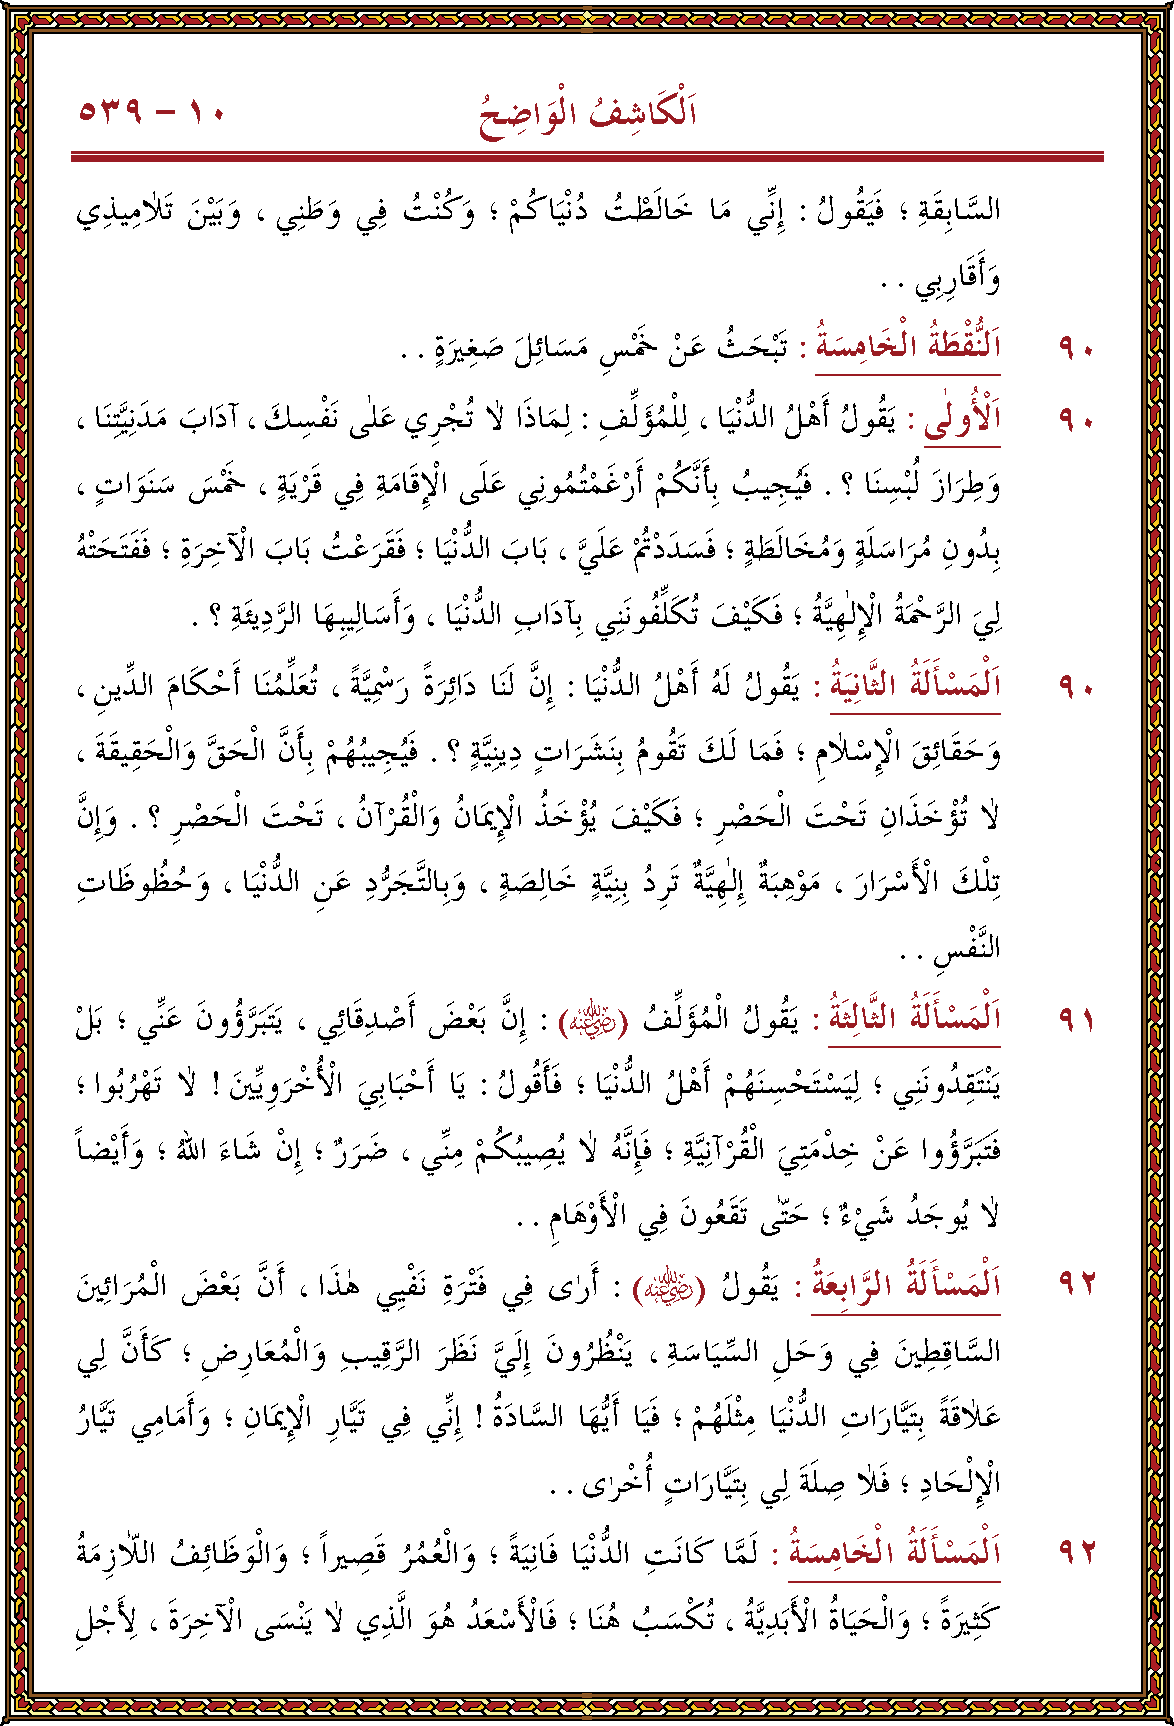 اَلْكَاشِفُ الْوَاضِحُ ١٠ – ٥٣٩
السَّابِقَةِ ؛ فَيَقُولُ : إِنِّي مَا خَالَطْتُ دُنْيَاكُمْ ؛ وَكُنْتُ فِي وَطَنِي ، وَبَيْنَ تَلَامِيذِي
وَأَقَارِبِي . .
٩٠ اَلنُّقْطَةُ الْخَامِسَةُ : تَبْحَثُ عَنْ خَمْسِ مَسَائِلَ صَغِيرَةٍ . .
٩٠ اَلْأُولٰى : يَقُولُ أَهْلُ الدُّنْيَا ، لِلْمُؤَلِّفِ : لِمَاذَا لَا تُجْرِي عَلٰى نَفْسِكَ ، آدَابَ مَدَنِيَّتِنَا ،
وَطِرَازَ لُبْسِنَا ؟ . فَيُجِيبُ بِأَنَّكُمْ أَرْغَمْتُمُونِي عَلَى الْإِقَامَةِ فِي قَرْيَةٍ ، خَمْسَ سَنَوَاتٍ ،
بِدُونِ مُرَاسَلَةٍ وَمُخَالَطَةٍ ؛ فَسَدَدْتُمْ عَلَيَّ ، بَابَ الدُّنْيَا ؛ فَقَرَعْتُ بَابَ الْآخِرَةِ ؛ فَفَتَحَتْهُ
لِيَ الرَّحْمَةُ الْإِلٰهِيَّةُ ؛ فَكَيْفَ تُكَلِّفُونَنِي بِآدَابِ الدُّنْيَا ، وَأَسَالِيبِهَا الرَّدِيئَةِ ؟ .
٩٠ اَلْمَسْأَلَةُ الثَّانِيَةُ : يَقُولُ لَهُ أَهْلُ الدُّنْيَا : إِنَّ لَنَا دَائِرَةً رَسْمِيَّةً ، تُعَلِّمُنَا أَحْكَامَ الدِّينِ ،
وَحَقَائِقَ الْإِسْلَامِ ؛ فَمَا لَكَ تَقُومُ بِنَشَرَاتٍ دِينِيَّةٍ ؟ . فَيُجِيبُهُمْ بِأَنَّ الْحَقَّ وَالْحَقِيقَةَ ،
لَا تُؤْخَذَانِ تَحْتَ الْحَصْرِ ؛ فَكَيْفَ يُؤْخَذُ الْإِيمَانُ وَالْقُرْآنُ ، تَحْتَ الْحَصْرِ ؟ . وَإِنَّ
تِلْكَ الْأَسْرَارَ ، مَوْهِبَةٌ إِلٰهِيَّةٌ تَرِدُ بِنِيَّةٍ خَالِصَةٍ ، وَبِالتَّجَرُّدِ عَنِ الدُّنْيَا ، وَحُظُوظَاتِ
النَّفْسِ . .
٩١ اَلْمَسْأَلَةُ الثَّالِثَةُ : يَقُولُ الْمُؤَلِّفُ (رضي الله عنه) : إِنَّ بَعْضَ أَصْدِقَائِي ، يَتَبَرَّؤُونَ عَنِّي ؛ بَلْ
يَنْتَقِدُونَنِي ؛ لِيَسْتَحْسِنَهُمْ أَهْلُ الدُّنْيَا ؛ فَأَقُولُ : يَا أَحْبَابِيَ الْأُخْرَوِيِّينَ ! لَا تَهْرُبُوا ؛
فَتَبَرَّؤُوا عَنْ خِدْمَتِيَ الْقُرْآنِيَّةِ ؛ فَإِنَّهُ لَا يُصِيبُكُمْ مِنِّي ، ضَرَرٌ ؛ إِنْ شَاءَ اللهُ ؛ وَأَيْضاً
لَا يُوجَدُ شَيْءٌ ؛ حَتّٰى تَقَعُونَ فِي الْأَوْهَامِ . .
٩٢ اَلْمَسْأَلَةُ الرَّابِعَةُ : يَقُولُ (رضي الله عنه) : أَرٰى فِي فَتْرَةِ نَفْيِي هٰذَا ، أَنَّ بَعْضَ الْمُرَائِينَ
السَّاقِطِينَ فِي وَحَلِ السِّيَاسَةِ ، يَنْظُرُونَ إِلَيَّ نَظَرَ الرَّقِيبِ وَالْمُعَارِضِ ؛ كَأَنَّ لِي
عَلَاقَةً بِتَيَّارَاتِ الدُّنْيَا مِثْلَهُمْ ؛ فَيَا أَيُّهَا السَّادَةُ ! إِنِّي فِي تَيَّارِ الْإِيمَانِ ؛ وَأَمَامِي تَيَّارُ
الْإِلْحَادِ ؛ فَلَا صِلَةَ لِي بِتَيَّارَاتٍ أُخْرٰى . .
٩٢ اَلْمَسْأَلَةُ الْخَامِسَةُ : لَمَّا كَانَتِ الدُّنْيَا فَانِيَةً ؛ وَالْعُمُرُ قَصِيراً ؛ وَالْوَظَائِفُ اللَّازِمَةُ
كَثِيرَةً ؛ وَالْحَيَاةُ الْأَبَدِيَّةُ ، تُكْسَبُ هُنَا ؛ فَالْأَسْعَدُ هُوَ الَّذِي لَا يَنْسَى الْآخِرَةَ ، لِأَجْلِ